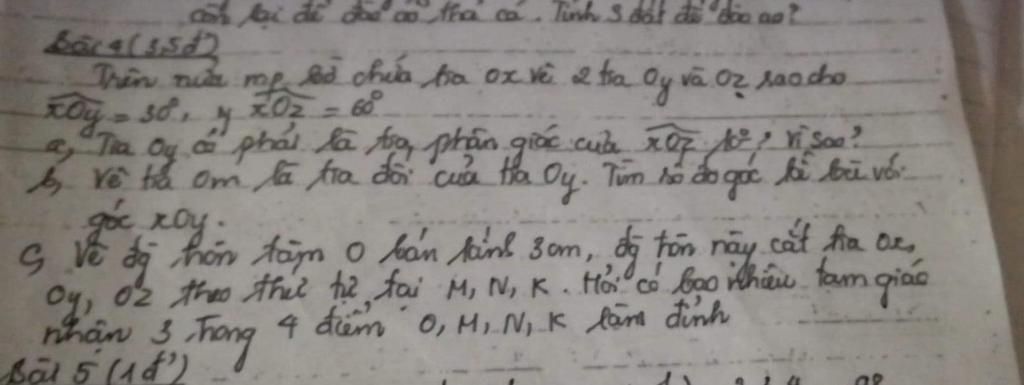 còn lại để đào ao thả cá. Tính S đất để đào ao?
Bài 4 (3,5đ)
Trên nửa mp bờ chứa tia Ox vẽ 2 tia Oy và Oz sao cho
xOy = 30°, xOz = 60°
a, Tia Oy có phải là tia phân giác của xOz k°? Vì sao?
b, Vẽ tia Om là tia đối của tia Oy. Tìm số đo góc kề bù với
góc xOy.
c, Vẽ đg tròn tâm O bán kính 3cm, đg tròn này cắt tia Ox,
Oy, Oz theo thứ tự tại M, N, K. Hỏi có bao nhiêu tam giác
nhận 3 trong 4 điểm O, M, N, K làm đỉnh
Bài 5 (1đ)